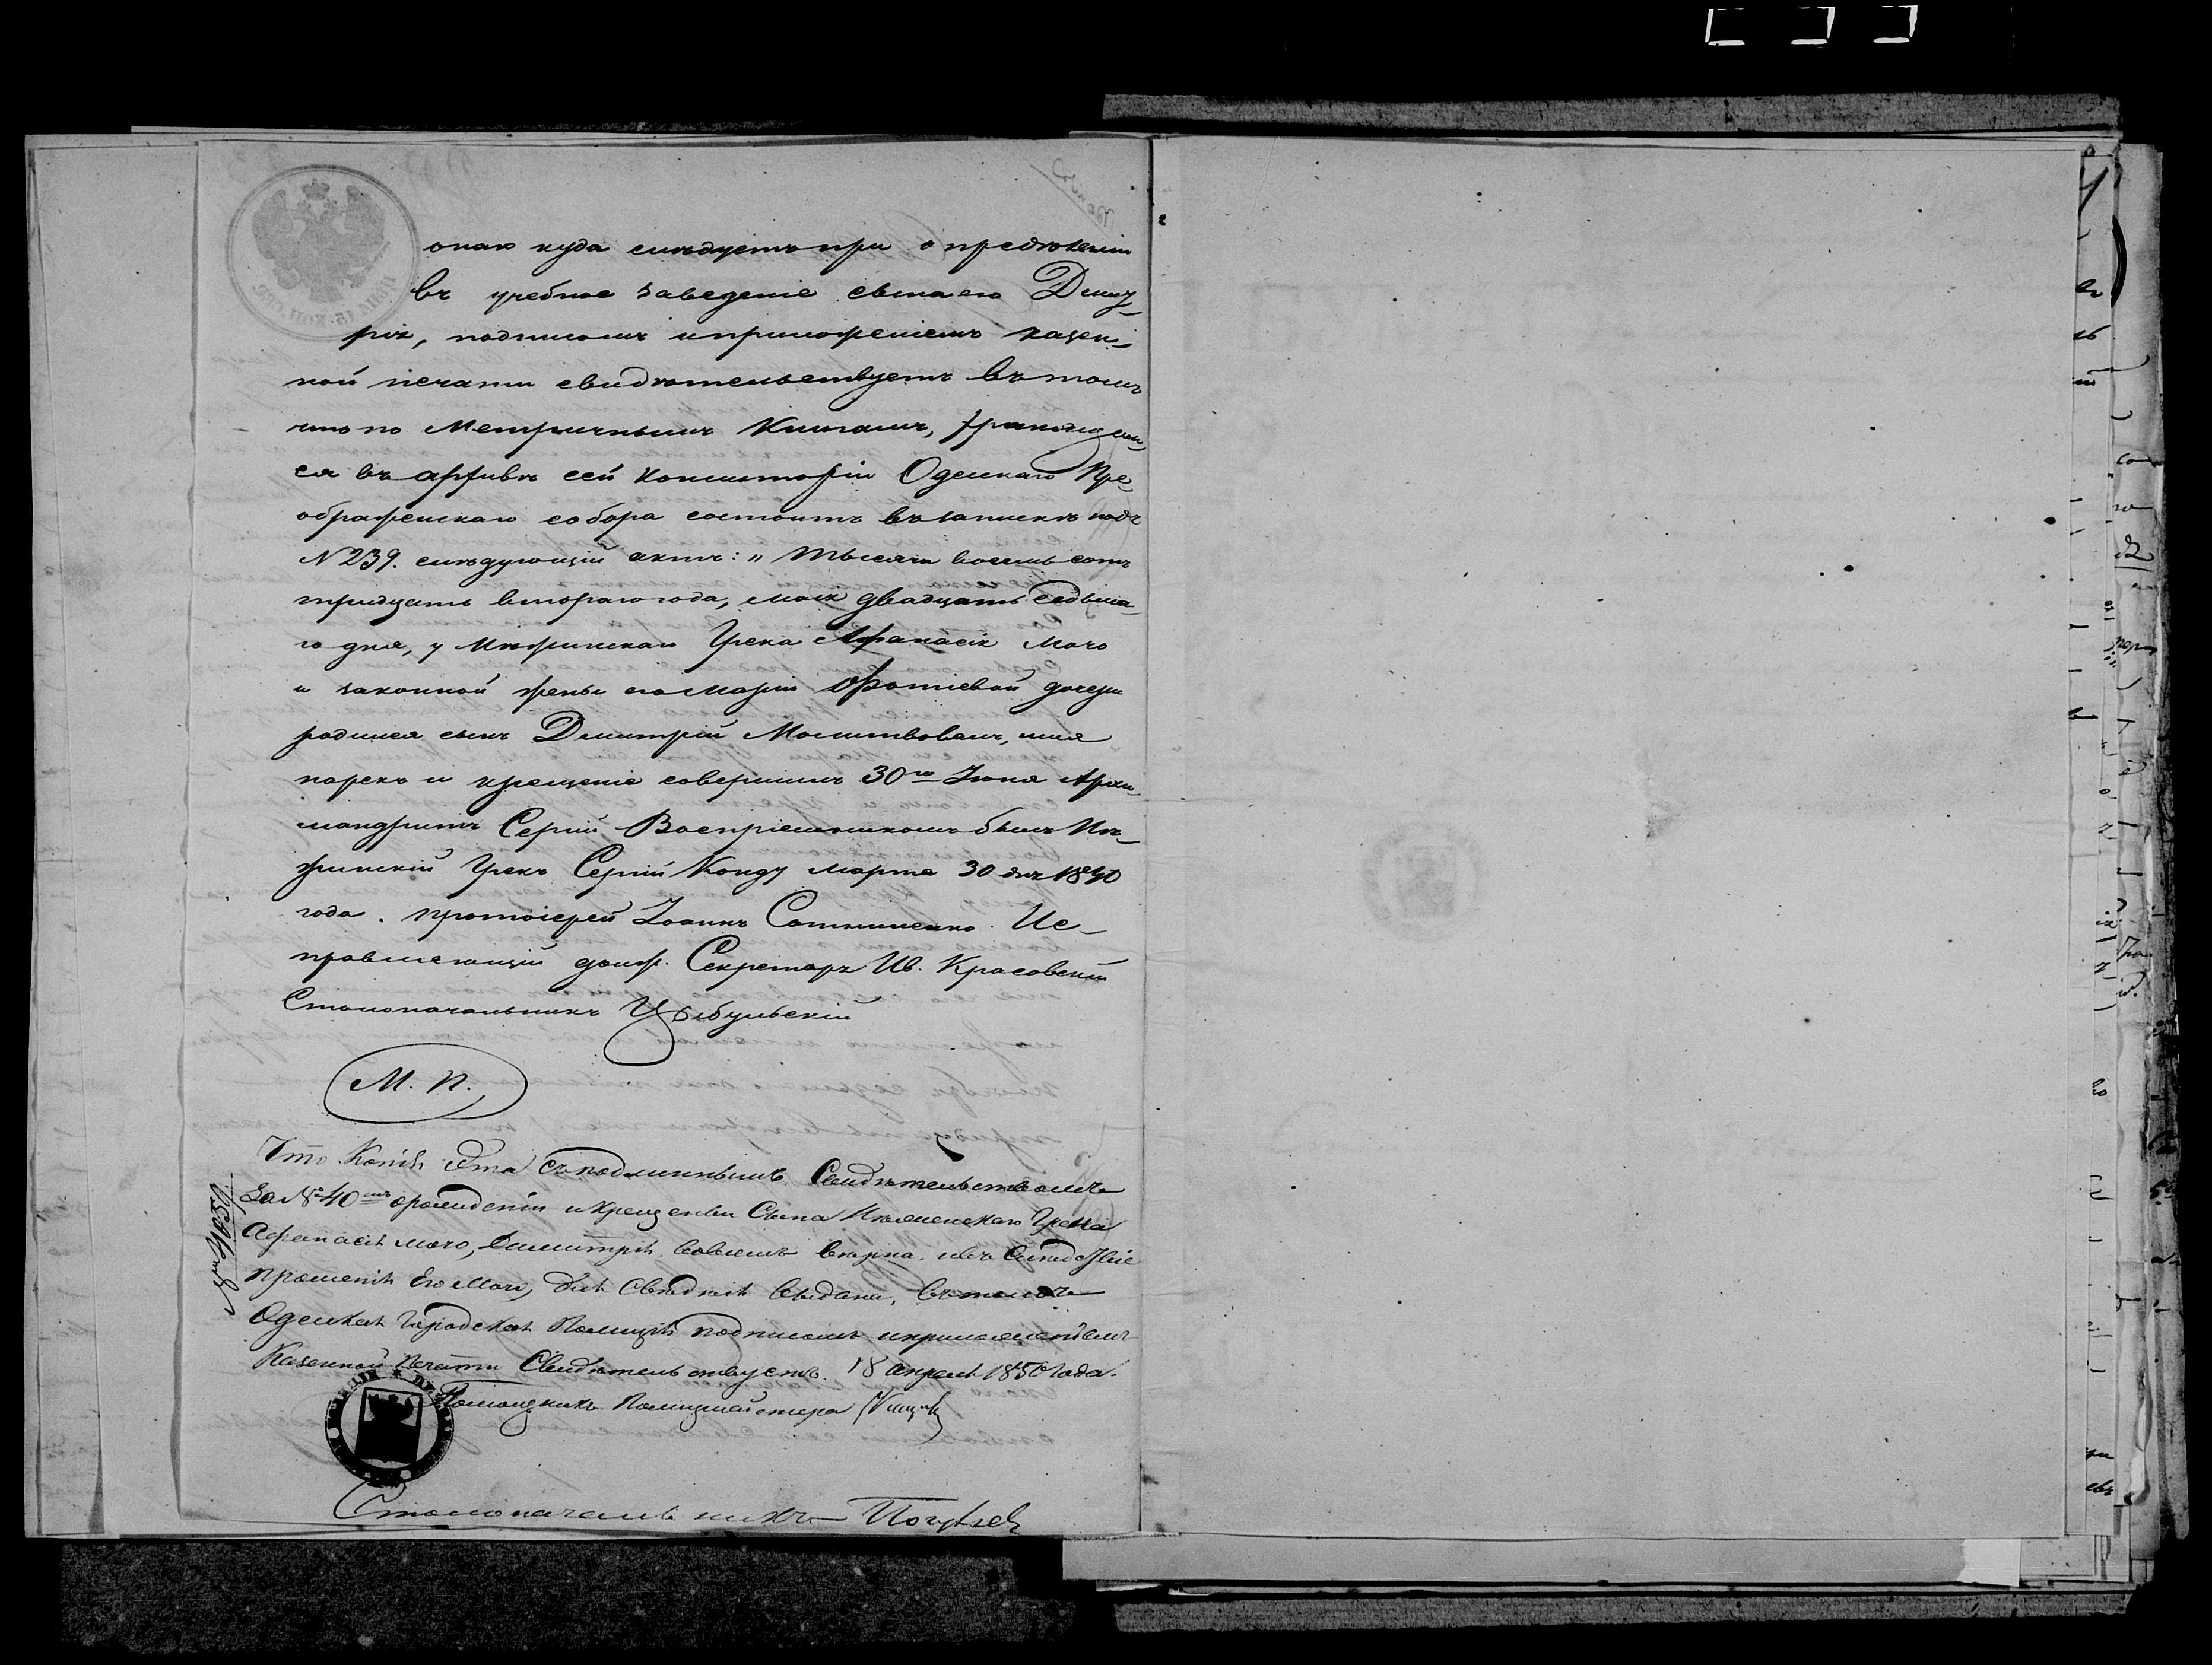 онаго куда слѣдуетъ при опредѣленіи
въ учебное заведеніе сына его Дмит-
рія, подписомъ и приложеніемъ казен-
ной печати свидѣтельствуетъ въ томъ
что по Метричнымъ Книгамъ, хранящим-
ся въ архивѣ сей Консисторіи Одескаго Пре-
ображенскаго собора состоитъ въ запискѣ подъ
N 239. слѣдующій актъ: „ Тысяча восемь сотъ
тридцать втораго года, мая двадцать седьма-
го дня, у Нѣжинскаго Грека Афанасія Мачо
и законной жены его Маріи Фотіевой дочери
родился сынъ Димитрій Молитвовалъ, имя
нарекъ и крещеніе совершилъ 30го Іюня Архи-
мандритъ Сергій Воспріемникомъ былъ Нѣ-
жинскій Грекъ Сергій Конду Марта 30 дня 1840
года. Протоіерей Іоаннъ Ис-
правляющій долж. Секретаря Ив. Красовскій
Столоначальникъ Цыбульскій
М. П.
Что Копія эта съ подлиннымъ Свидѣтельствомъ
За № 40мъ о рожденіи и крещеніи Сына Нѣжинскаго Грека
Афанасія Мачо, Димитрія, во всемъ вѣрна, и въ слѣдствіе
прошенія Его Мачо, Для Свѣдѣнія выдана, въ томъ
Одеская Городская Полиція подписомъ и приложеніемъ
Казенной Печати Свидѣтельствуетъ. 18 апреля 1850 года.
Помощникъ Полицмейстера
Столоначальникъ